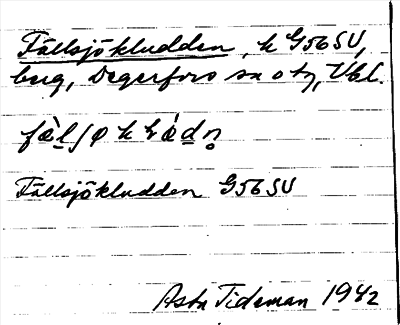 Fällsjökludden, k G56SU,
berg, Degerfors sn o tg, Vbl.
Fällsjökludden G56SU
Asta Tideman 1942